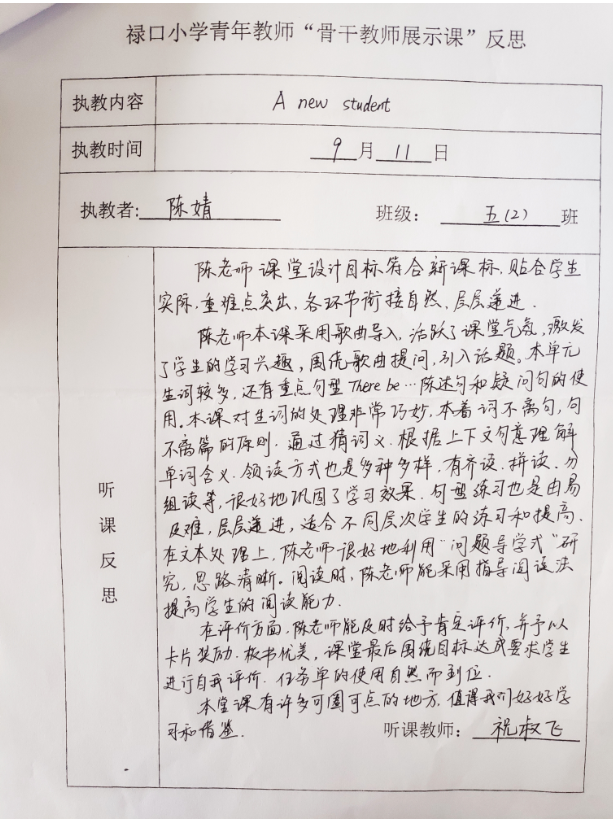 禄口小学青年教师“骨干教师展示课”反思
执教内容 A new student
执教时间 9月11日
执教者: 陈婧 班级： 五(2) 班
听课反思
陈老师课堂设计目标符合新课标，贴合学生
实际，重难点突出，各环节衔接自然，层层递进．
陈老师本课采用歌曲导入，活跃了课堂气氛，激发
了学生的学习兴趣，围绕歌曲提问，引入话题。本单元
生词较多，还有重点句型There be…陈述句和疑问句的使
用。本课对生词的处理非常巧妙，本着词不离句，句
不离篇的原则．通过猜词义．根据上下文句意理解
单词含义．领读方式也是多种多样．有齐读．拼读．分
组读等，很好地巩固了学习效果．句型练习也是由易
及难，层层递进，适合不同层次学生的练习和提高．
在文本处理上，陈老师很好地利用“问题导学式”研
究，思路清晰。阅读时，陈老师能采用指导阅读法
提高学生的阅读能力．
在评价方面，陈老师能及时给予肯定评价，并予以
卡片奖励．板书优美，课堂最后围绕目标达成要求学生
进行自我评价．任务单的使用自然而到位．
本堂课有许多可圈可点的地方，值得我们好好学
习和借鉴． 听课教师： 祝叔飞